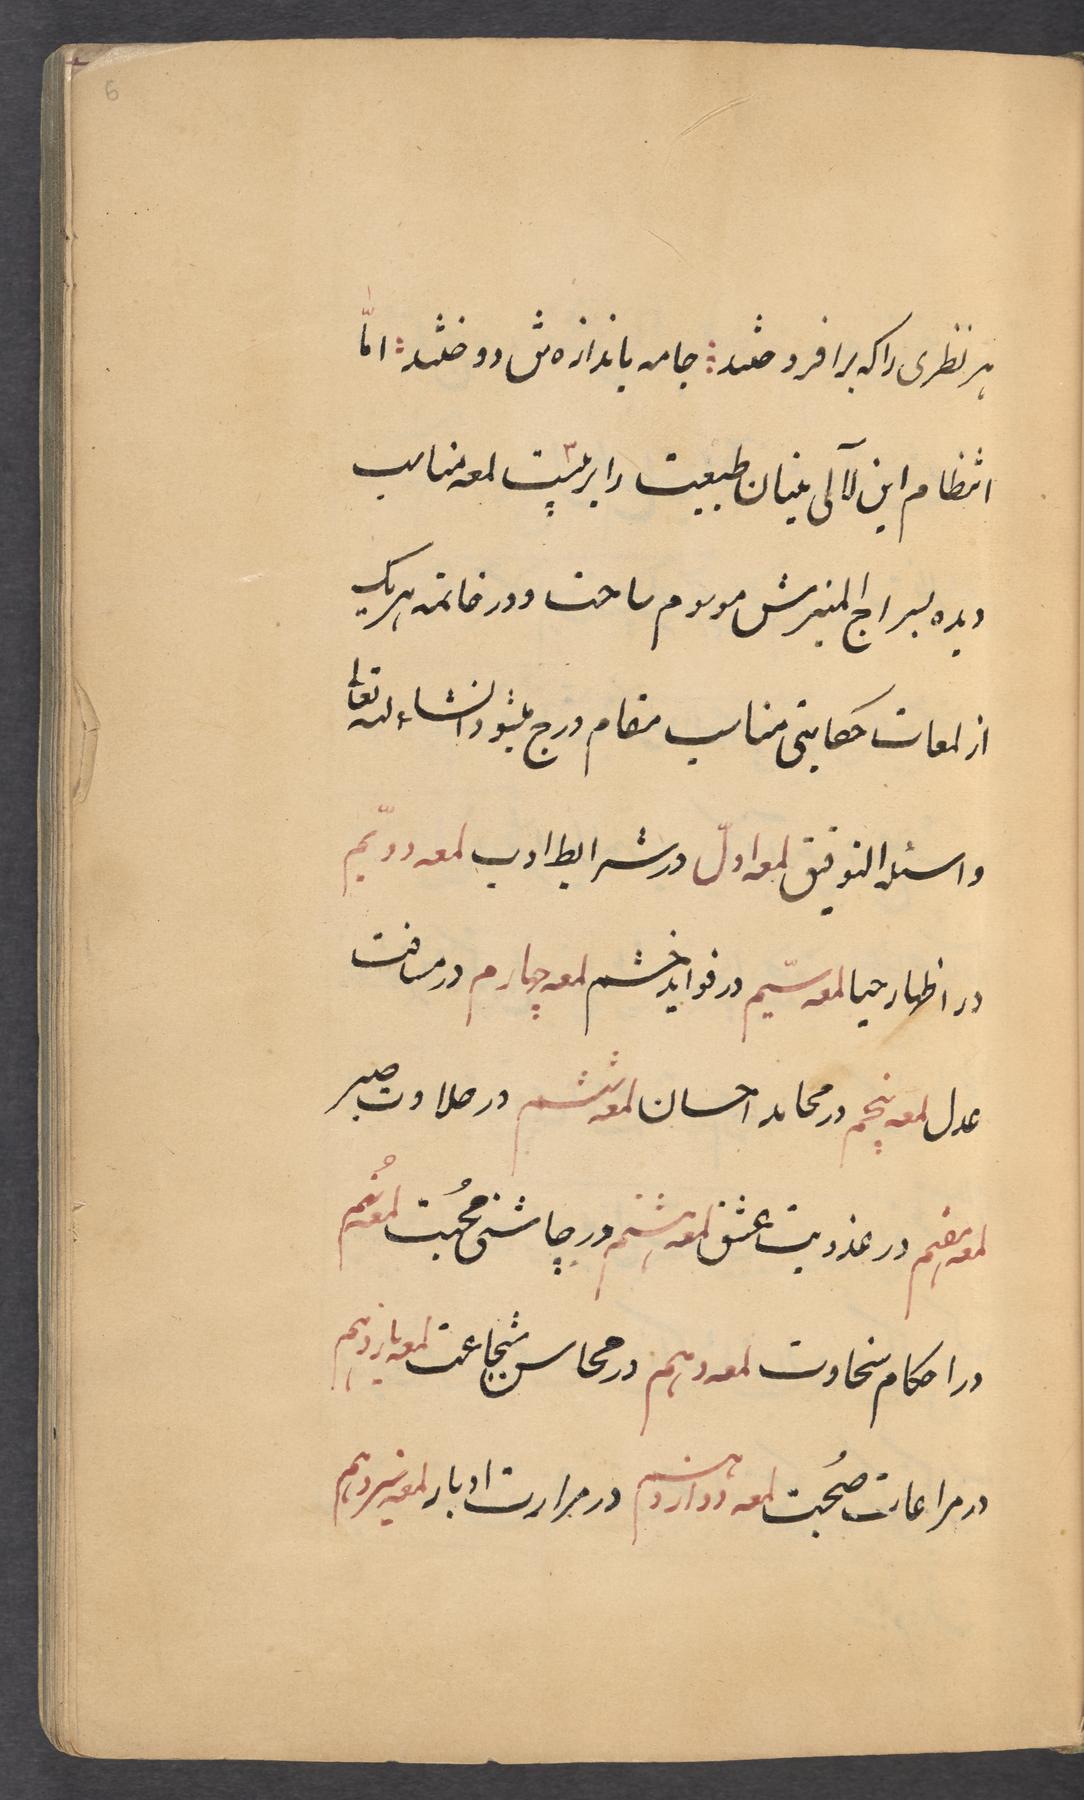 6
هر نظری را که برافروختند جامه باندازه‌ش دوختند امّا
انتظام این لآلی نیسان طبیعت را بر بیست لمعه مناسب
دیده بسراج المنیرش موسوم ساخت و در خاتمه هر یک
از لمعات حکایتی مناسب مقام درج میشود انشاء الله تعالی
و اسئله التوفیق لمعه اوّل در شرایط ادب لمعه دویّم
در اظهار حیا لمعه سیّم در فواید خشم لمعه چهارم در مسافت
عدل لمعه پنجم در محامد احسان لمعه ششم در حلاوت صبر
لمعه هفتم در عذوبت عشق لمعه هشتم در چاشنی محبت لمعه نُهم
در احکام سخاوت لمعه دهم در محاسن شجاعت لمعه یازدهم
در مراعات صُحبت لمعه دوازدهم در مرارت ادبار لمعه سیزدهم